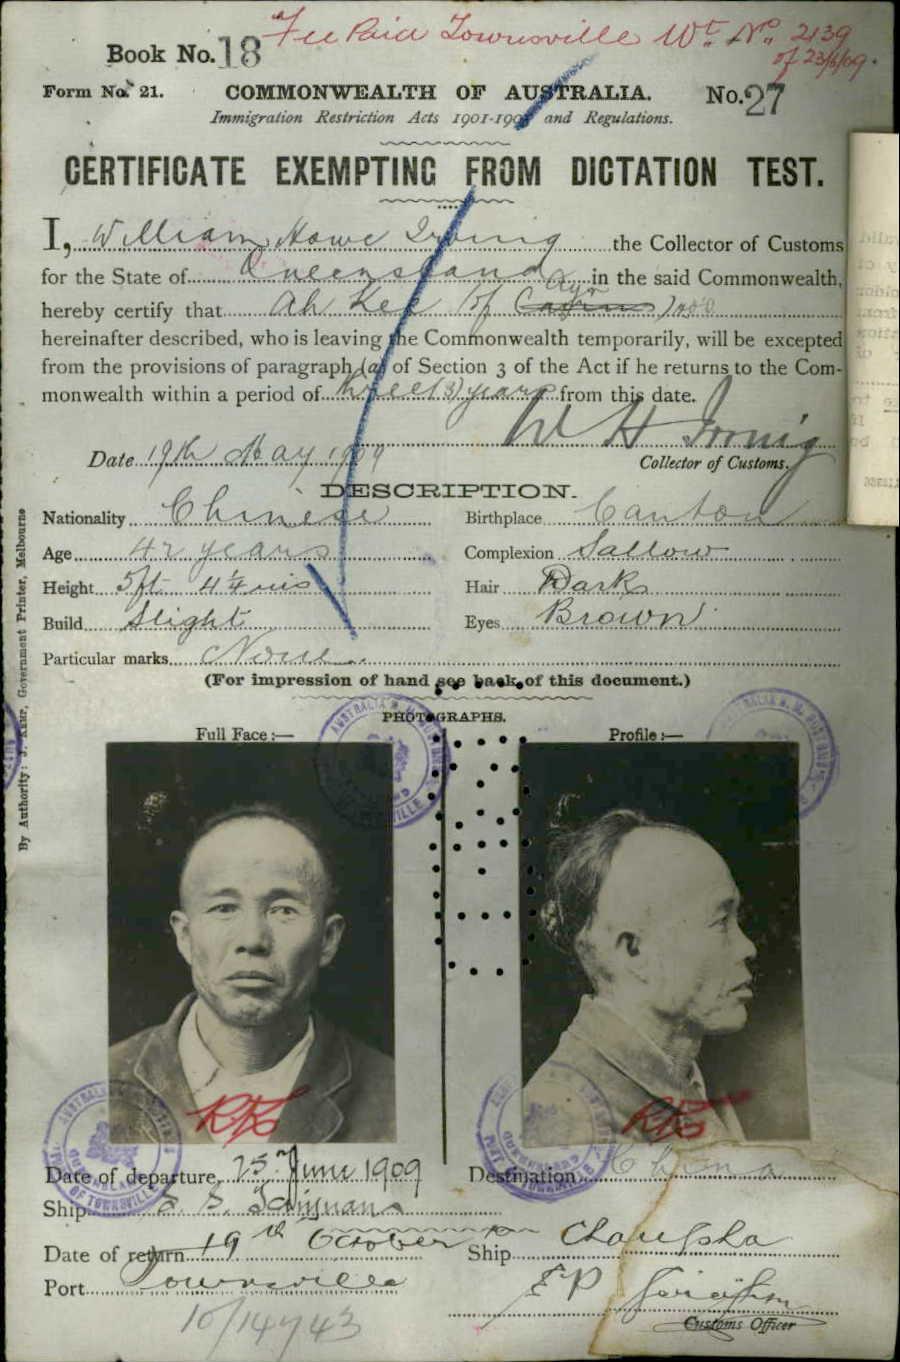 Fee Paid Townsville Wt. No. 2139
of 23/6/09.
Book No. 18
Form No. 21. COMMONWEALTH OF AUSTRALIA. No. 27
Immigration Restriction Acts 1901-190 and Regulations.
CERTIFICATE EXEMPTING FROM DICTATION TEST.
I, William Howe Irving the Collector of Customs
for the State of Queensland in the said Commonwealth,
Ayr
hereby certify that Ah Kee (of Cairns)
hereinafter described, who is leaving the Commonwealth temporarily, will be excepted
from the provisions of paragraph (a) of Section 3 of the Act if he returns to the Com-
monwealth within a period of three (3) years from this date.
W H Irving
Date 19th May 1909 Collector of Customs.
DESCRIPTION.
Nationality Chinese Birthplace Canton
Age 42 years Complexion Sallow
Height 5ft 4¼ ins Hair Dark
Build Slight Eyes Brown
Particular marks None
(For impression of hand see back of this document.)
PHOTOGRAPHS.
Full Face:— Profile:—
By Authority: J. Kemp, Government Printer, Melbourne
Date of departure 25 June 1909 Destination China
Ship S. S. Taiyuan
Date of return 19th October Ship Changsha
Port Townsville E P
Customs Officer
10/14743